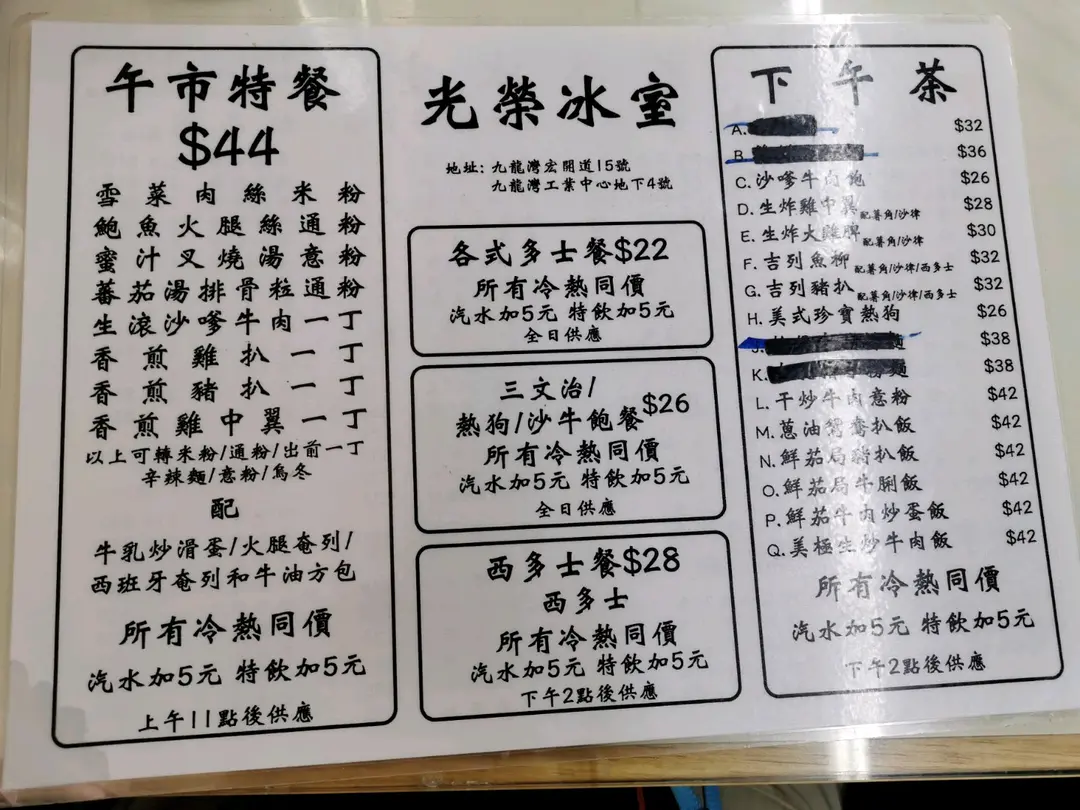 午市特餐
$44
雪菜肉絲米粉
鮑魚火腿絲通粉
蜜汁叉燒湯意粉
蕃茄湯排骨粒通粉
生滾沙嗲牛肉一丁
香煎雞扒一丁
香煎豬扒一丁
香煎雞中翼一丁
以上可轉米粉/通粉/出前一丁
辛辣麵/意粉/烏冬
配
牛乳炒滑蛋/火腿奄列/
西班牙奄列和牛油方包
所有冷熱同價
汽水加5元 特飲加5元
上午11點後供應
光榮冰室
地址: 九龍灣宏開道15號
九龍灣工業中心地下4號
各式多士餐$22
所有冷熱同價
汽水加5元 特飲加5元
全日供應
三文治/
熱狗/沙牛飽餐$26
所有冷熱同價
汽水加5元 特飲加5元
全日供應
西多士餐$28
西多士
所有冷熱同價
汽水加5元 特飲加5元
下午2點後供應
下午茶
A. $32
B. $36
C. 沙嗲牛肉飽 $26
D. 生炸雞中翼配薯角/沙律 $28
E. 生炸大雞髀配薯角/沙律 $30
F. 吉列魚柳配薯角/沙律/西多士 $32
G. 吉列豬扒配薯角/沙律/西多士 $32
H. 美式珍寶熱狗 $26
J. 麵 $38
K. 麵 $38
L. 干炒牛肉意粉 $42
M. 蔥油鴛鴦扒飯 $42
N. 鮮茄局豬扒飯 $42
O. 鮮茄局牛脷飯 $42
P. 鮮茄牛肉炒蛋飯 $42
Q. 美極生炒牛肉飯 $42
所有冷熱同價
汽水加5元 特飲加5元
下午2點後供應